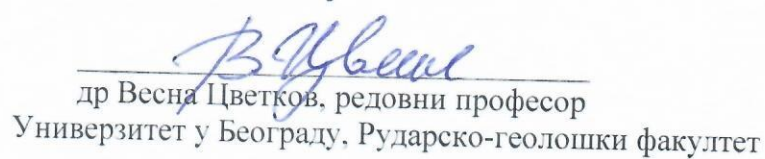 др Весна Цветков, редовни професор
Универзитет у Београду, Рударско-геолошки факултет